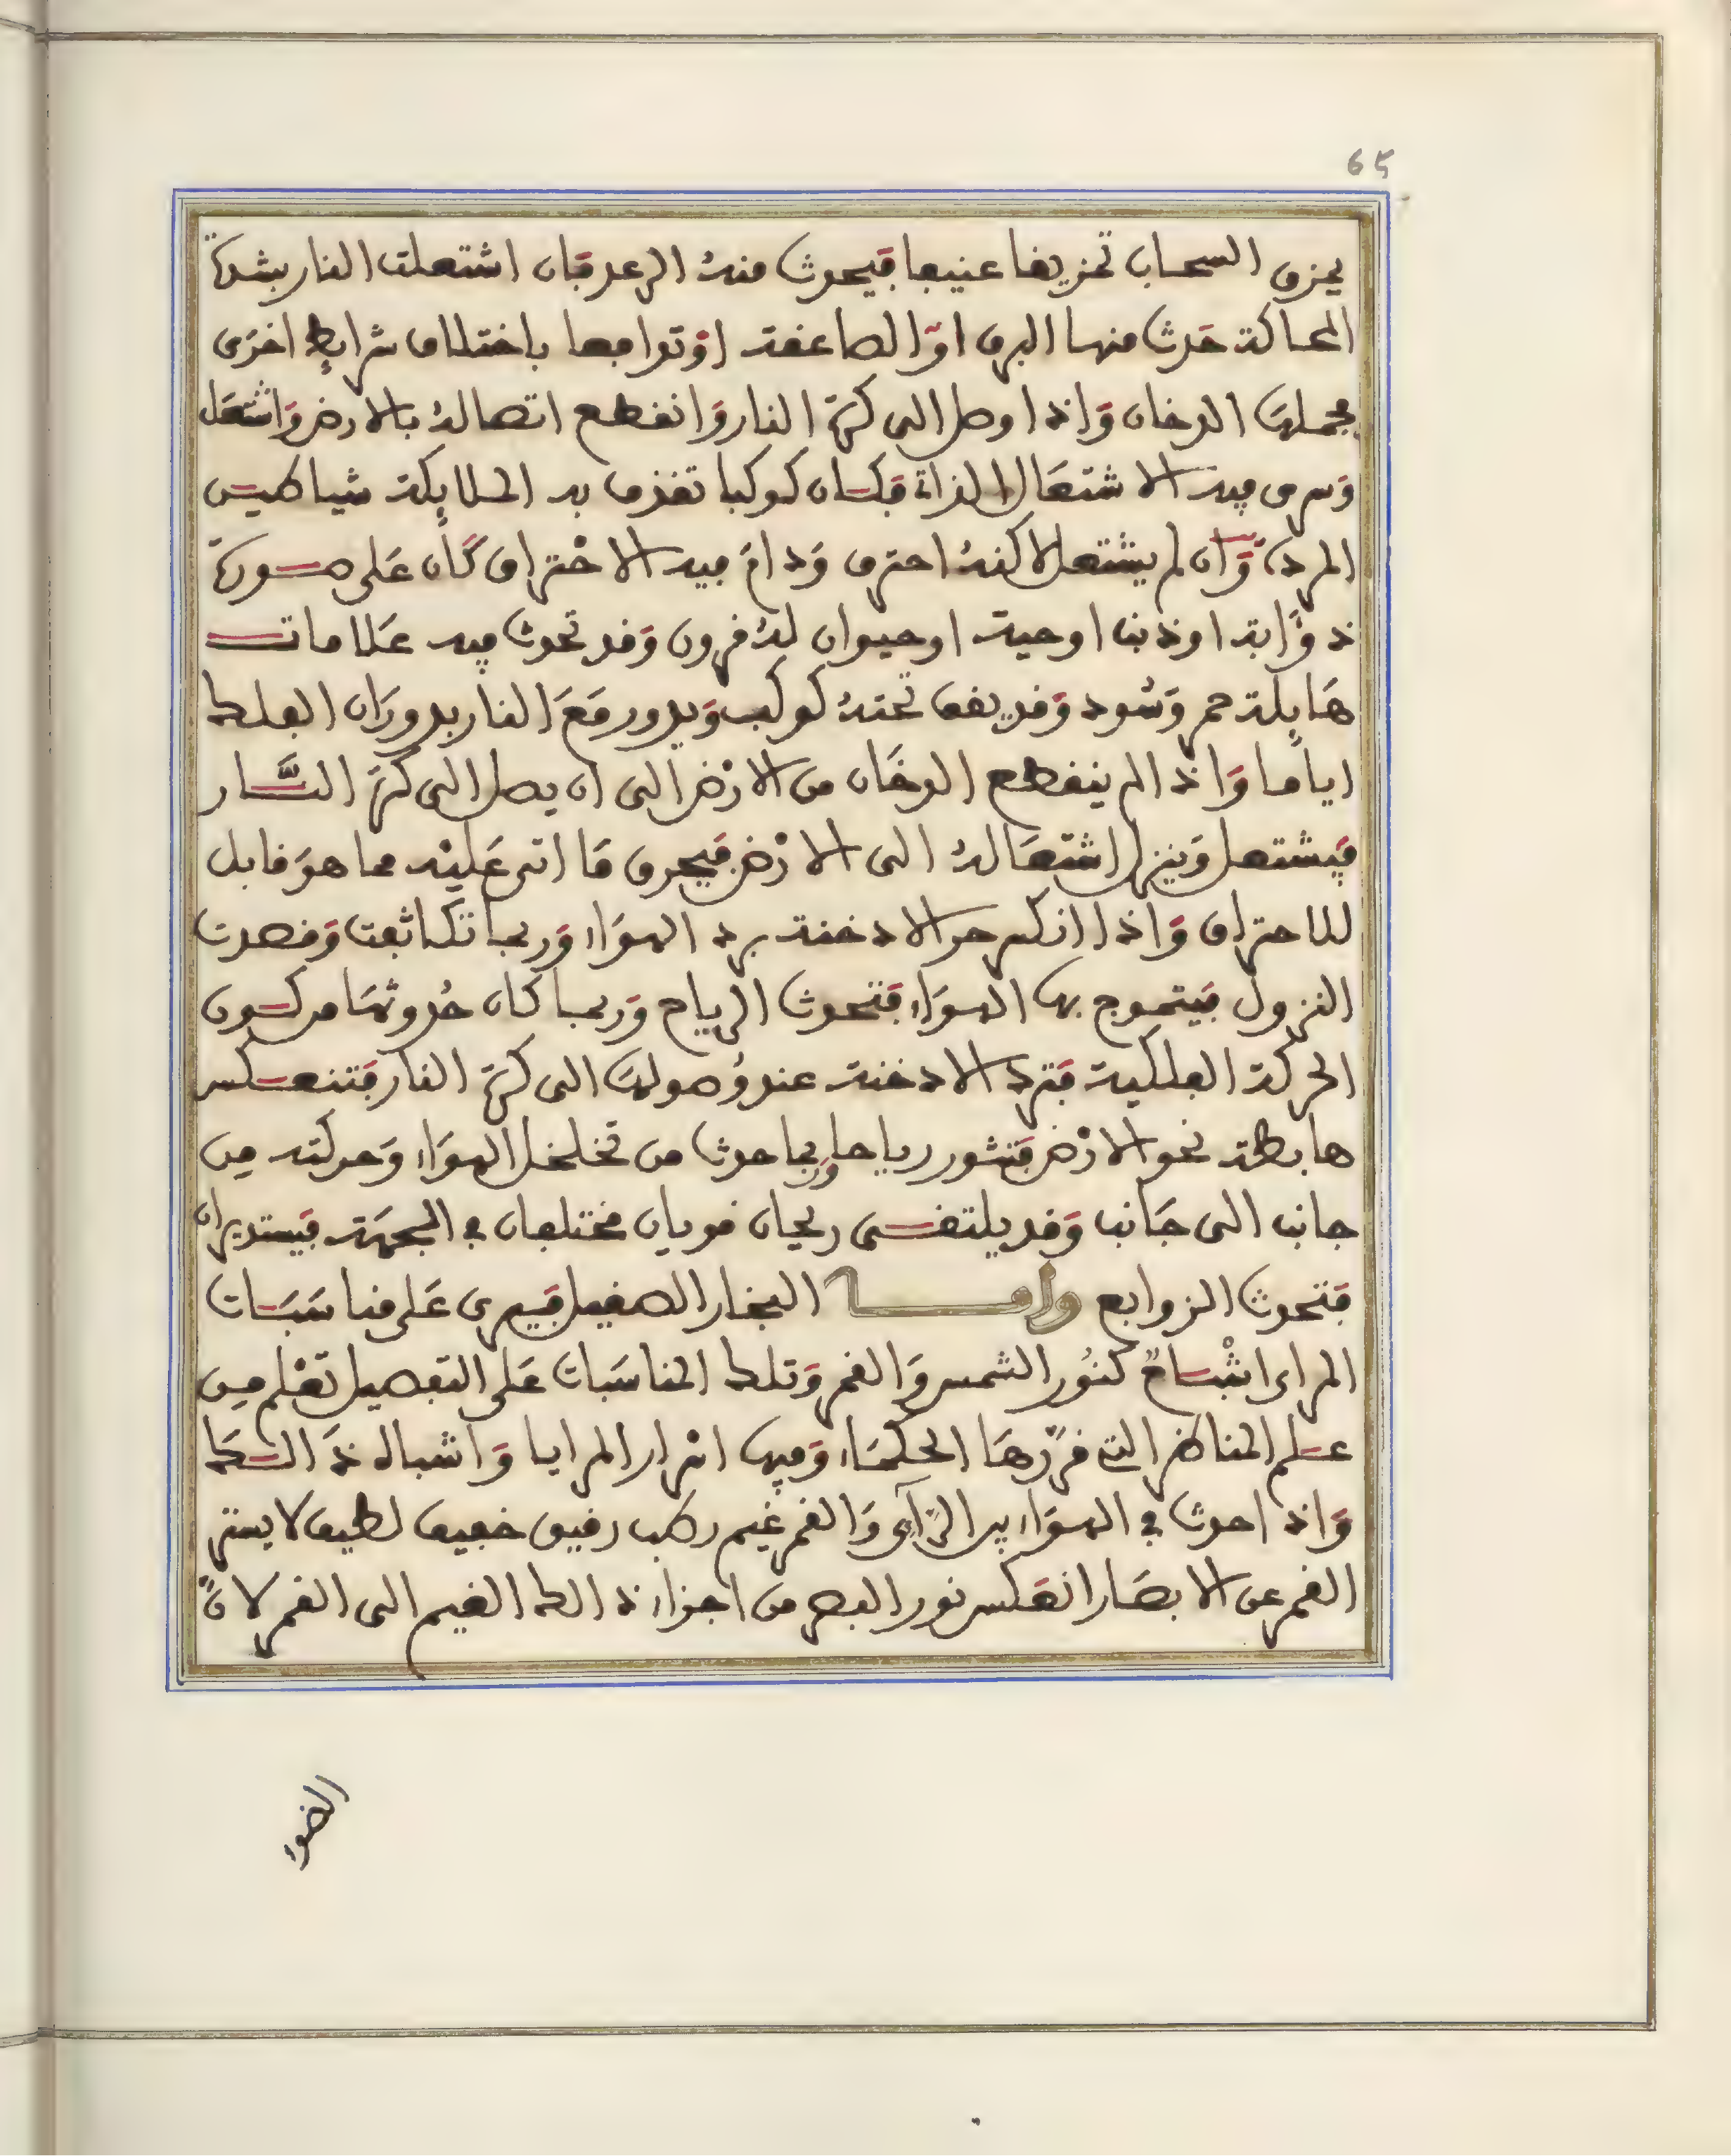 65
يمزق السحاب تمزيقا عنيفا فيحدث منه الرعد فان اشتعلت النار بشدة
المحاكة حدث منها البرق او الصاعقة او توافعا باختلاف شرايط اخرى
يجملها الدخان واذا وصل الى كرة النار وانقطع اتصاله بالارض واشتعل
وسرى فيه الاشتعال فكان كوكبا تقذف به الملايكة شياطين
المرد وان لم يشتعل لاكنه احترق ودام فيه الاحتراق كان على صورة
ذوابة او ذنب او حية او حيوان له قرون وقد تحدث فيه علامات
هايلة حمر وسود وقد يقف تحته كوكب ويدور مع النار بدوران الفلك
اياما واذا لم ينقطع الدخان من الارض الى ان يصل الى كرة النار
فيشتعل وينزل اشتعاله الى الارض فيحرق ما اتى عليه مما هو قابل
للاحتراق واذا انكسر حر الادخنة ببرد الهواء وربما تكاثفت وقصدت
النزول فيتموج بها الهواء فتحدث الرياح وربما كان حدوثها من كون
الحركة الفلكية فترد الادخنة عند وصولها الى كرة النار فتنعكس
هابطة نحو الارض فتثور رياحا وربما حدث من تخلخل الهواء وحركته من
جانب الى جانب وقد يلتقى ريحان قويان مختلفان في الجهة فيستديران
فتحدث الزوابع واما البخار الصقيل فيسرى على مناسبات
المراءى اشباح كنور الشمس والقمر وتلك المناسبات على التفصيل تعلم من
علم المناظر التي قررها الحكماء وفيها اسرار المرايا واشباه ذالك
واذا حدث في الهواء بين الرآءى والقمر غيم رطب رقيق خفيف لطيف لا يستر
القمر عن الابصار انعكس نور البصر من اجزاء ذالك الغيم الى القمر لان
الضوء